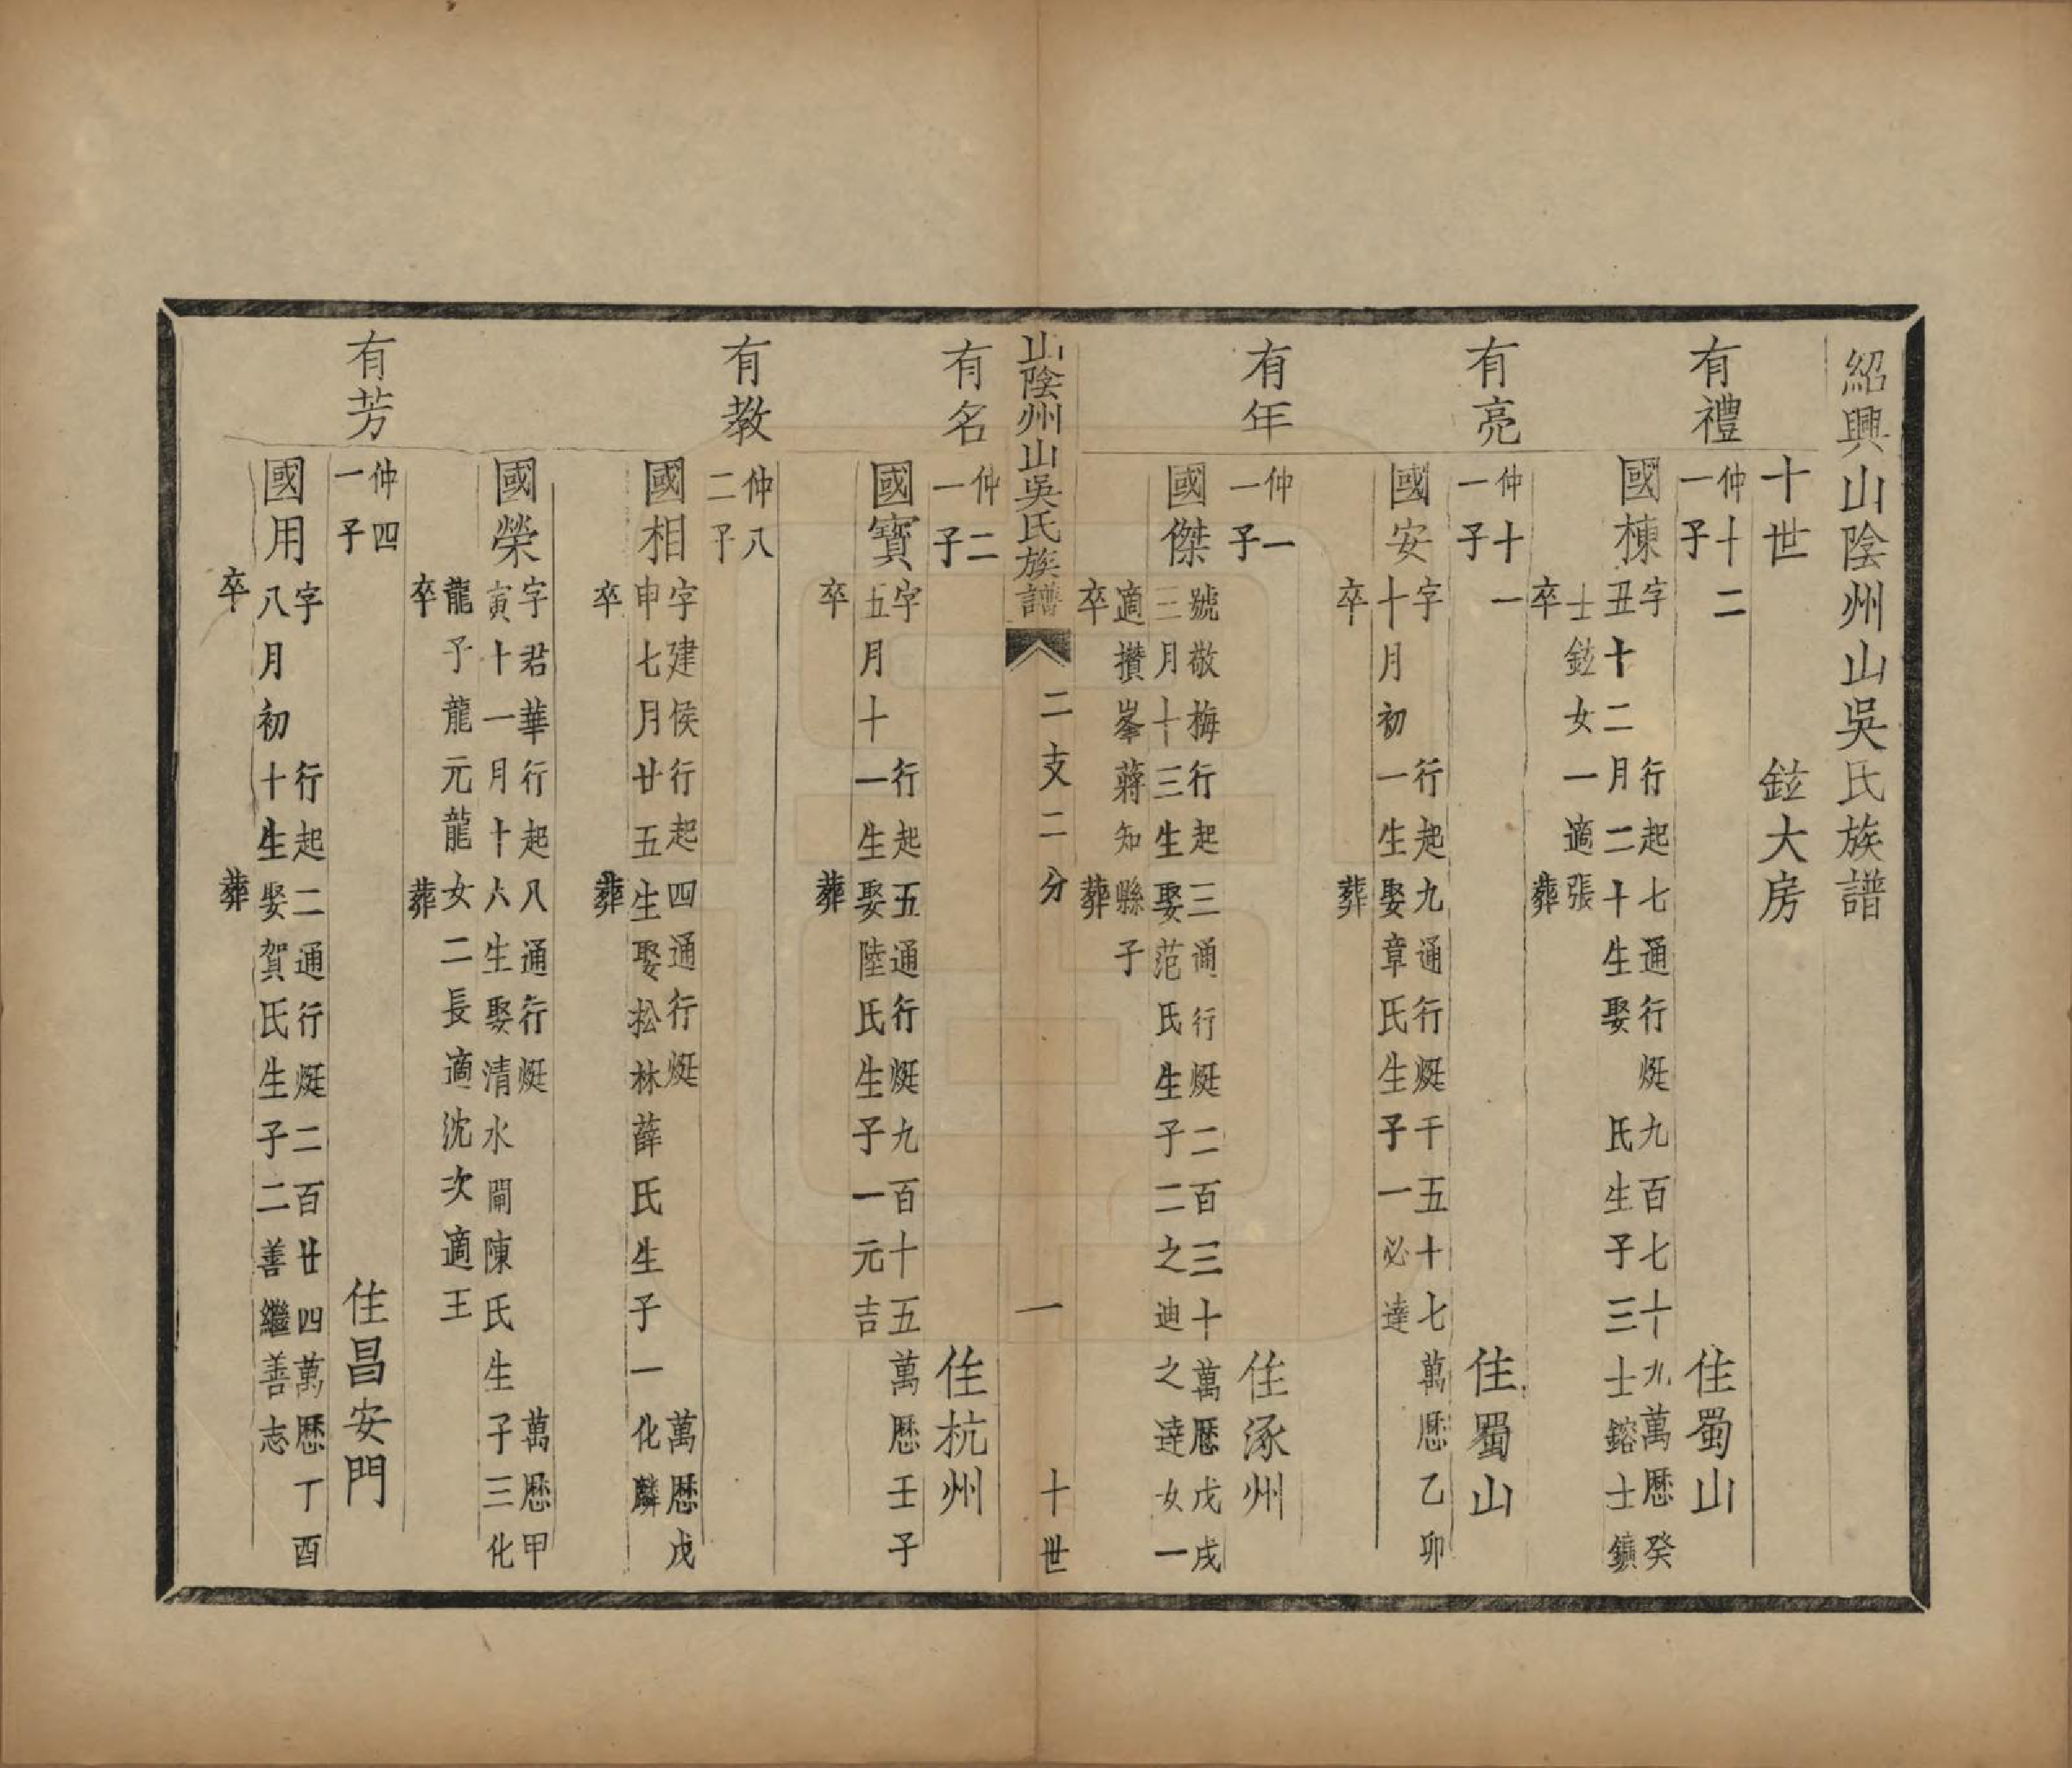 紹興山陰州山吳氏族譜
十世　鈜大房
有禮
仲十二
一子　住蜀山
國棟
字　行起七通行烶九百七十九萬厯癸
丑十二月二十生娶　氏生子三士鎔士鑛
士鈜女一適張
卒　葬
有亮
仲十一
一子　住蜀山
國安
字　行起九通行烶千五十七萬厯乙卯
十月初一生娶章氏生子一必達
卒　葬
有年
仲一
一子　住涿州
國傑
號敬梅行起三通行烶二百三十萬厯戊戌
三月十三生娶范氏生子二之迪之達女一
適攢峯蔣知縣子
卒　葬
山陰州山吳氏族譜　二支二分　一　十世
有名
仲二
一子　住杭州
國寳
字　行起五通行烶九百十五萬厯壬子
五月十一生娶陸氏生子一元吉
卒　葬
有教
仲八
二子
國相
字建侯行起四通行烶　萬厯戊
申七月廿五生娶松林薛氏生子一化麟
卒　葬
國榮
字君華行起八通行烶　萬厯甲
寅十一月十六生娶清水閘陳氏生子三化
龍予龍元龍女二長適沈次適王
卒　葬
有芳
仲四
一子　住昌安門
國用
字　行起二通行烶二百廿四萬厯丁酉
八月初十生娶賀氏生子二善繼善志
卒　葬